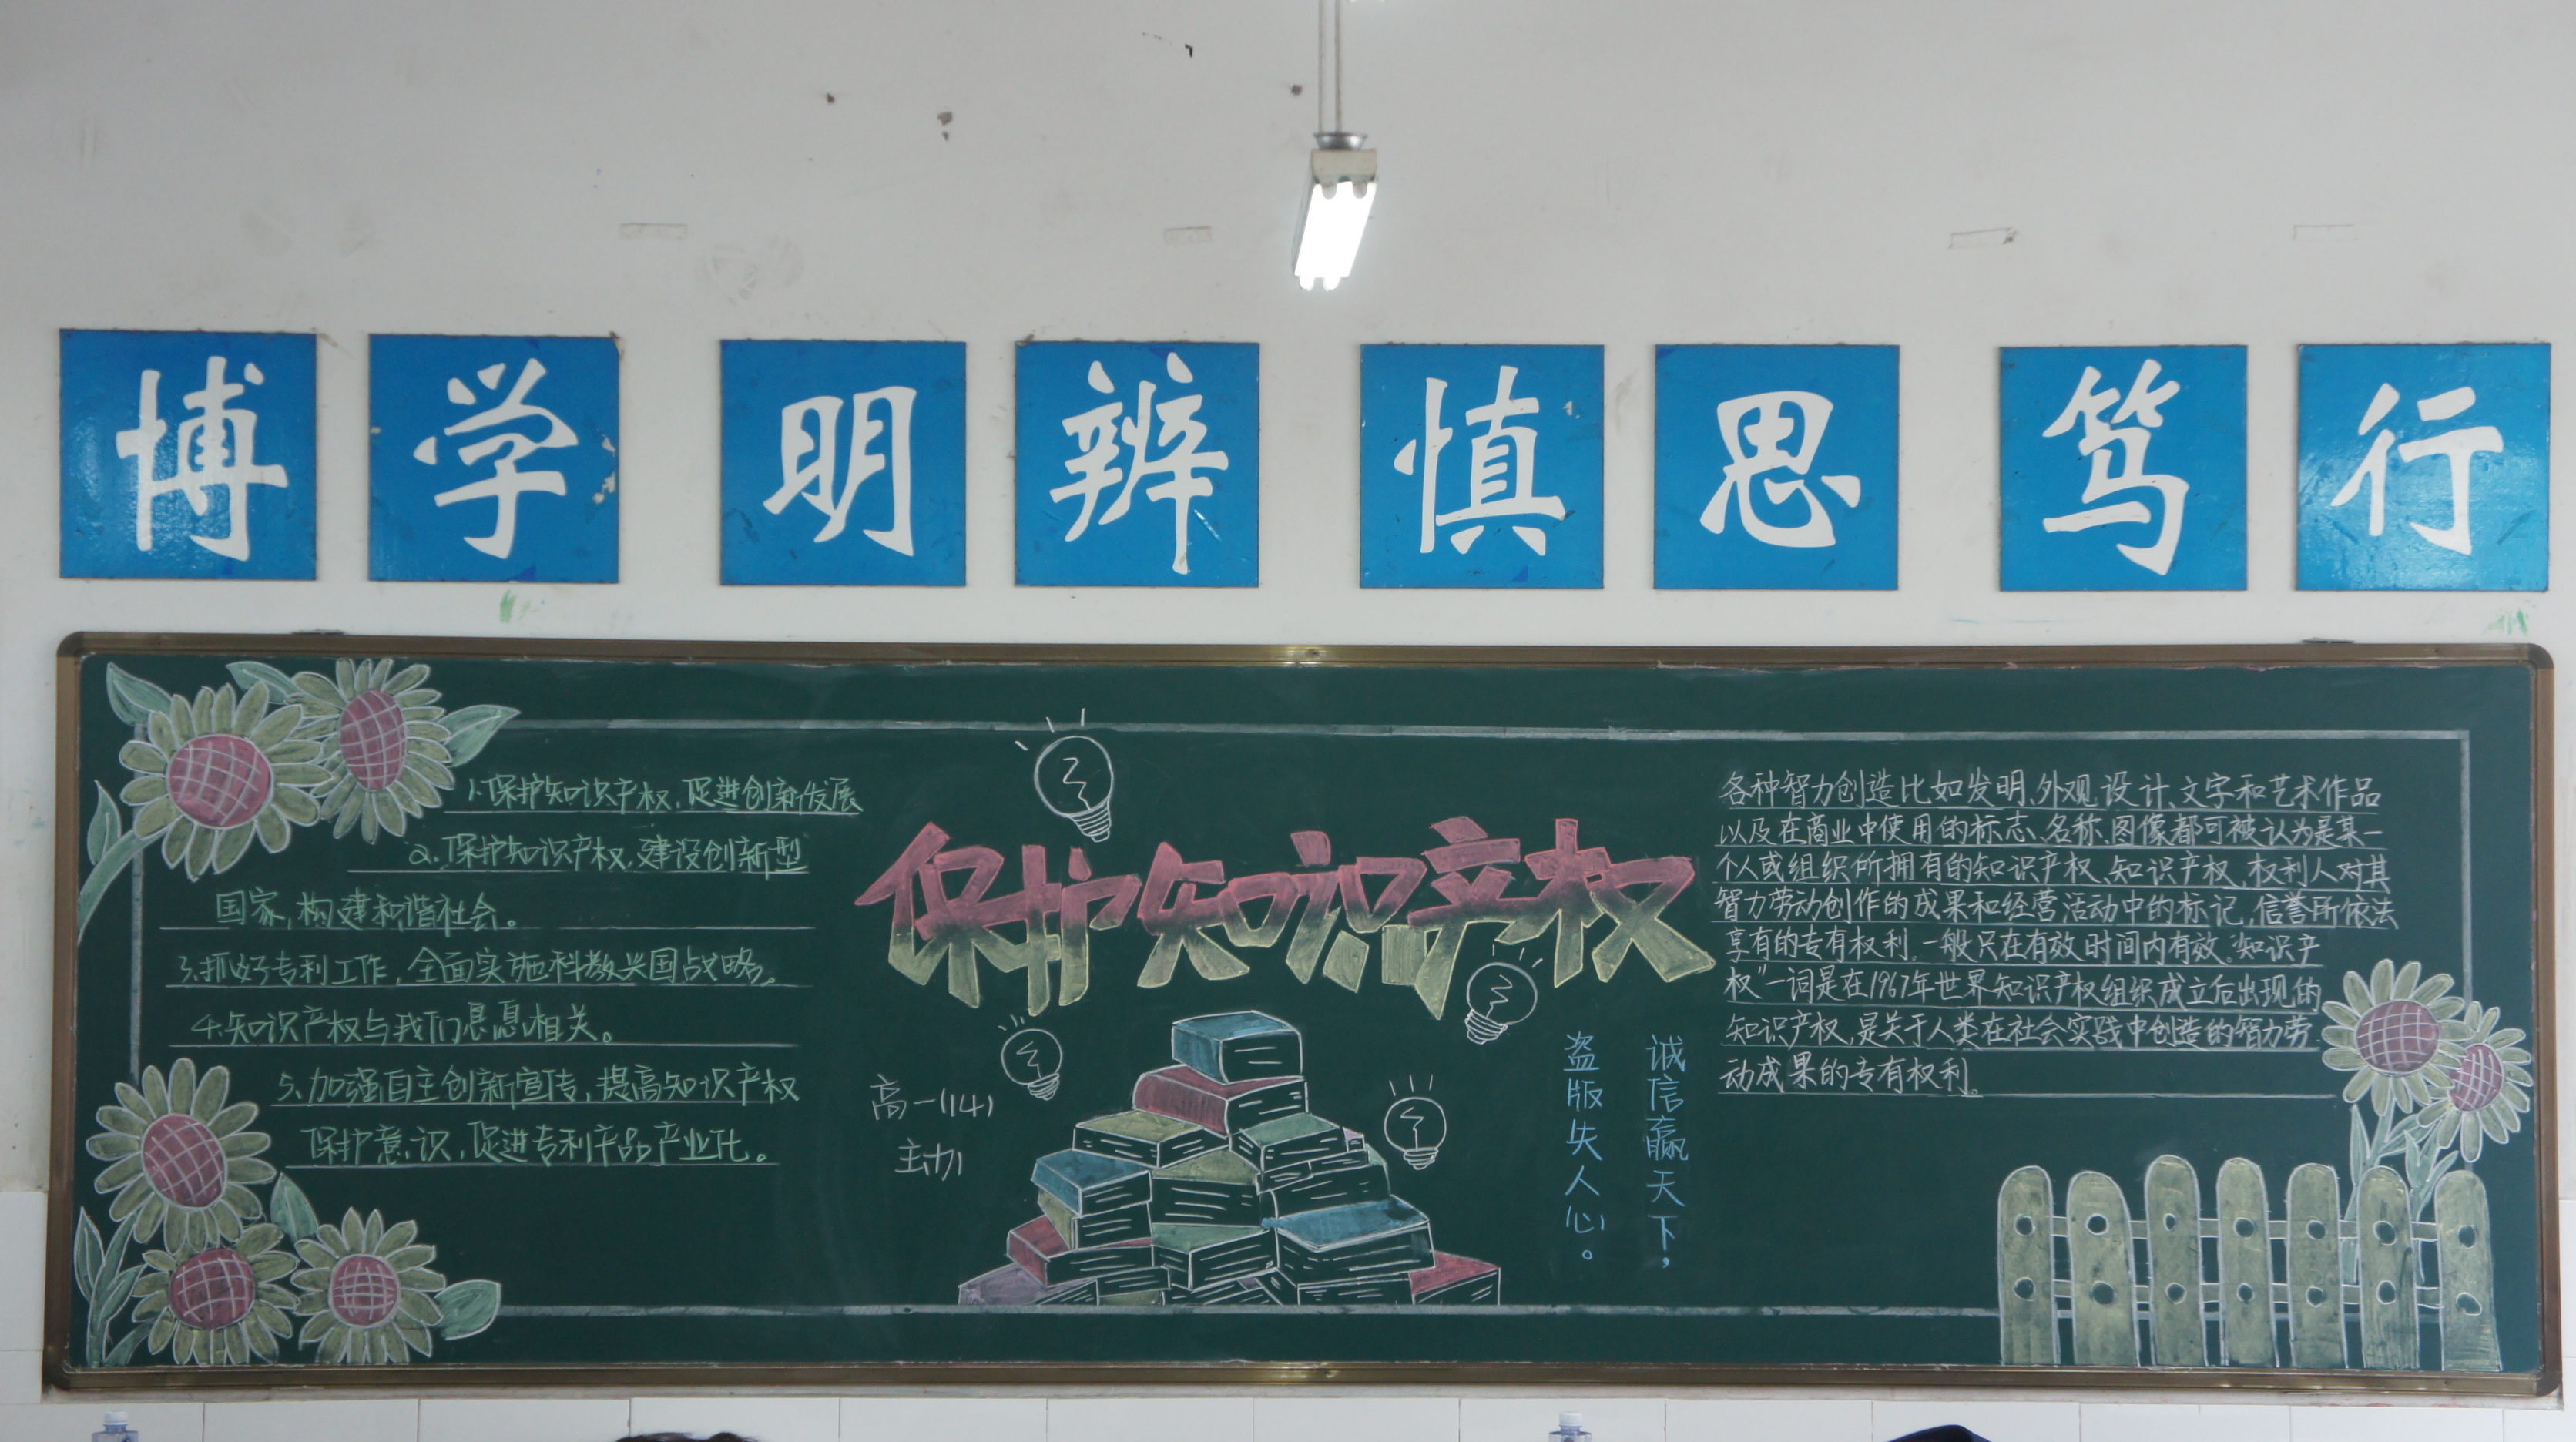 博学 明辨 慎思 笃行
1.保护知识产权,促进创新发展
2.保护知识产权,建设创新型
国家,构建和谐社会。
3.抓好专利工作,全面实施科教兴国战略。
4.知识产权与我们息息相关。
5.加强自主创新宣传,提高知识产权
保护意识,促进专利产品产业化。
保护知识产权
高一(14)
主办
诚信赢天下,
盗版失人心。
各种智力创造比如发明、外观设计、文字和艺术作品
以及在商业中使用的标志、名称、图像都可被认为是某一
个人或组织所拥有的知识产权、知识产权,权利人对其
智力劳动创作的成果和经营活动中的标记,信誉所依法
享有的专有权利,一般只在有效时间内有效。“知识产
权”一词是在1967年世界知识产权组织成立后出现的
知识产权,是关于人类在社会实践中创造的智力劳
动成果的专有权利。